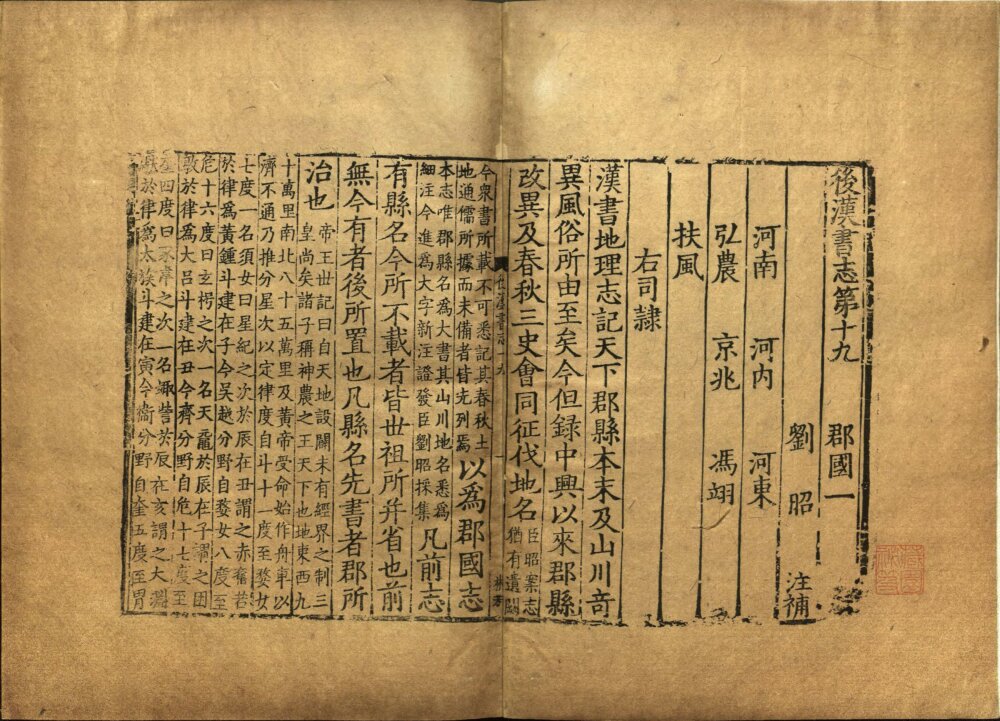 後漢書志第十九 郡國一
劉昭 注補
河南 河内 河東
弘農 京兆 馮翊
扶風
右司隷
漢書地理志記天下郡縣本末及山川竒
異風俗所由至矣今但録中興以來郡縣
改異及春秋三史會同征伐地名
臣昭案志
猶有遺闕
後漢書志十九
一
今衆書所載不可悉記其春秋土
地通儒所據而未備者皆先列焉
以爲郡國志
本志唯郡縣名爲大書其山川地名悉爲
細注今進爲大字新注證發臣劉昭採集
凡前志
有縣名今所不載者皆世祖所并省也前
無今有者後所置也凡縣名先書者郡所
治也
帝王世記曰自天地設闢未有經界之制三
皇尚矣諸子稱神農之王天下也地東西九
十萬里南北八十五萬里及黄帝受命始作舟車以
濟不通乃推分星次以定律度自斗十一度至婺女
七度一名須女曰星紀之次於辰在丑謂之赤奮若
於律爲黄鍾斗建在子今吳越分野自婺女八度至
危十六度曰玄枵之次一名天黿於辰在子謂之困
敦於律爲大吕斗建在丑今齊分野自危十七度至
奎四度曰豕韋之次一名娵訾於辰在亥謂之大淵
獻於律爲太蔟斗建在寅今衞分野自奎五度至胃